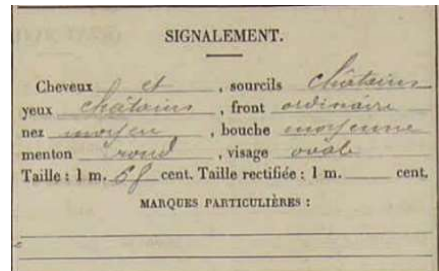 SIGNALEMENT.
Cheveux et, sourcils châtains
yeux châtains, front ordinaire
nez moyen, bouche moyenne
menton rond, visage ovale
Taille : 1 m. cent. Taille rectifiée : 1 m. cent.
MARQUES PARTICULIÈRES :